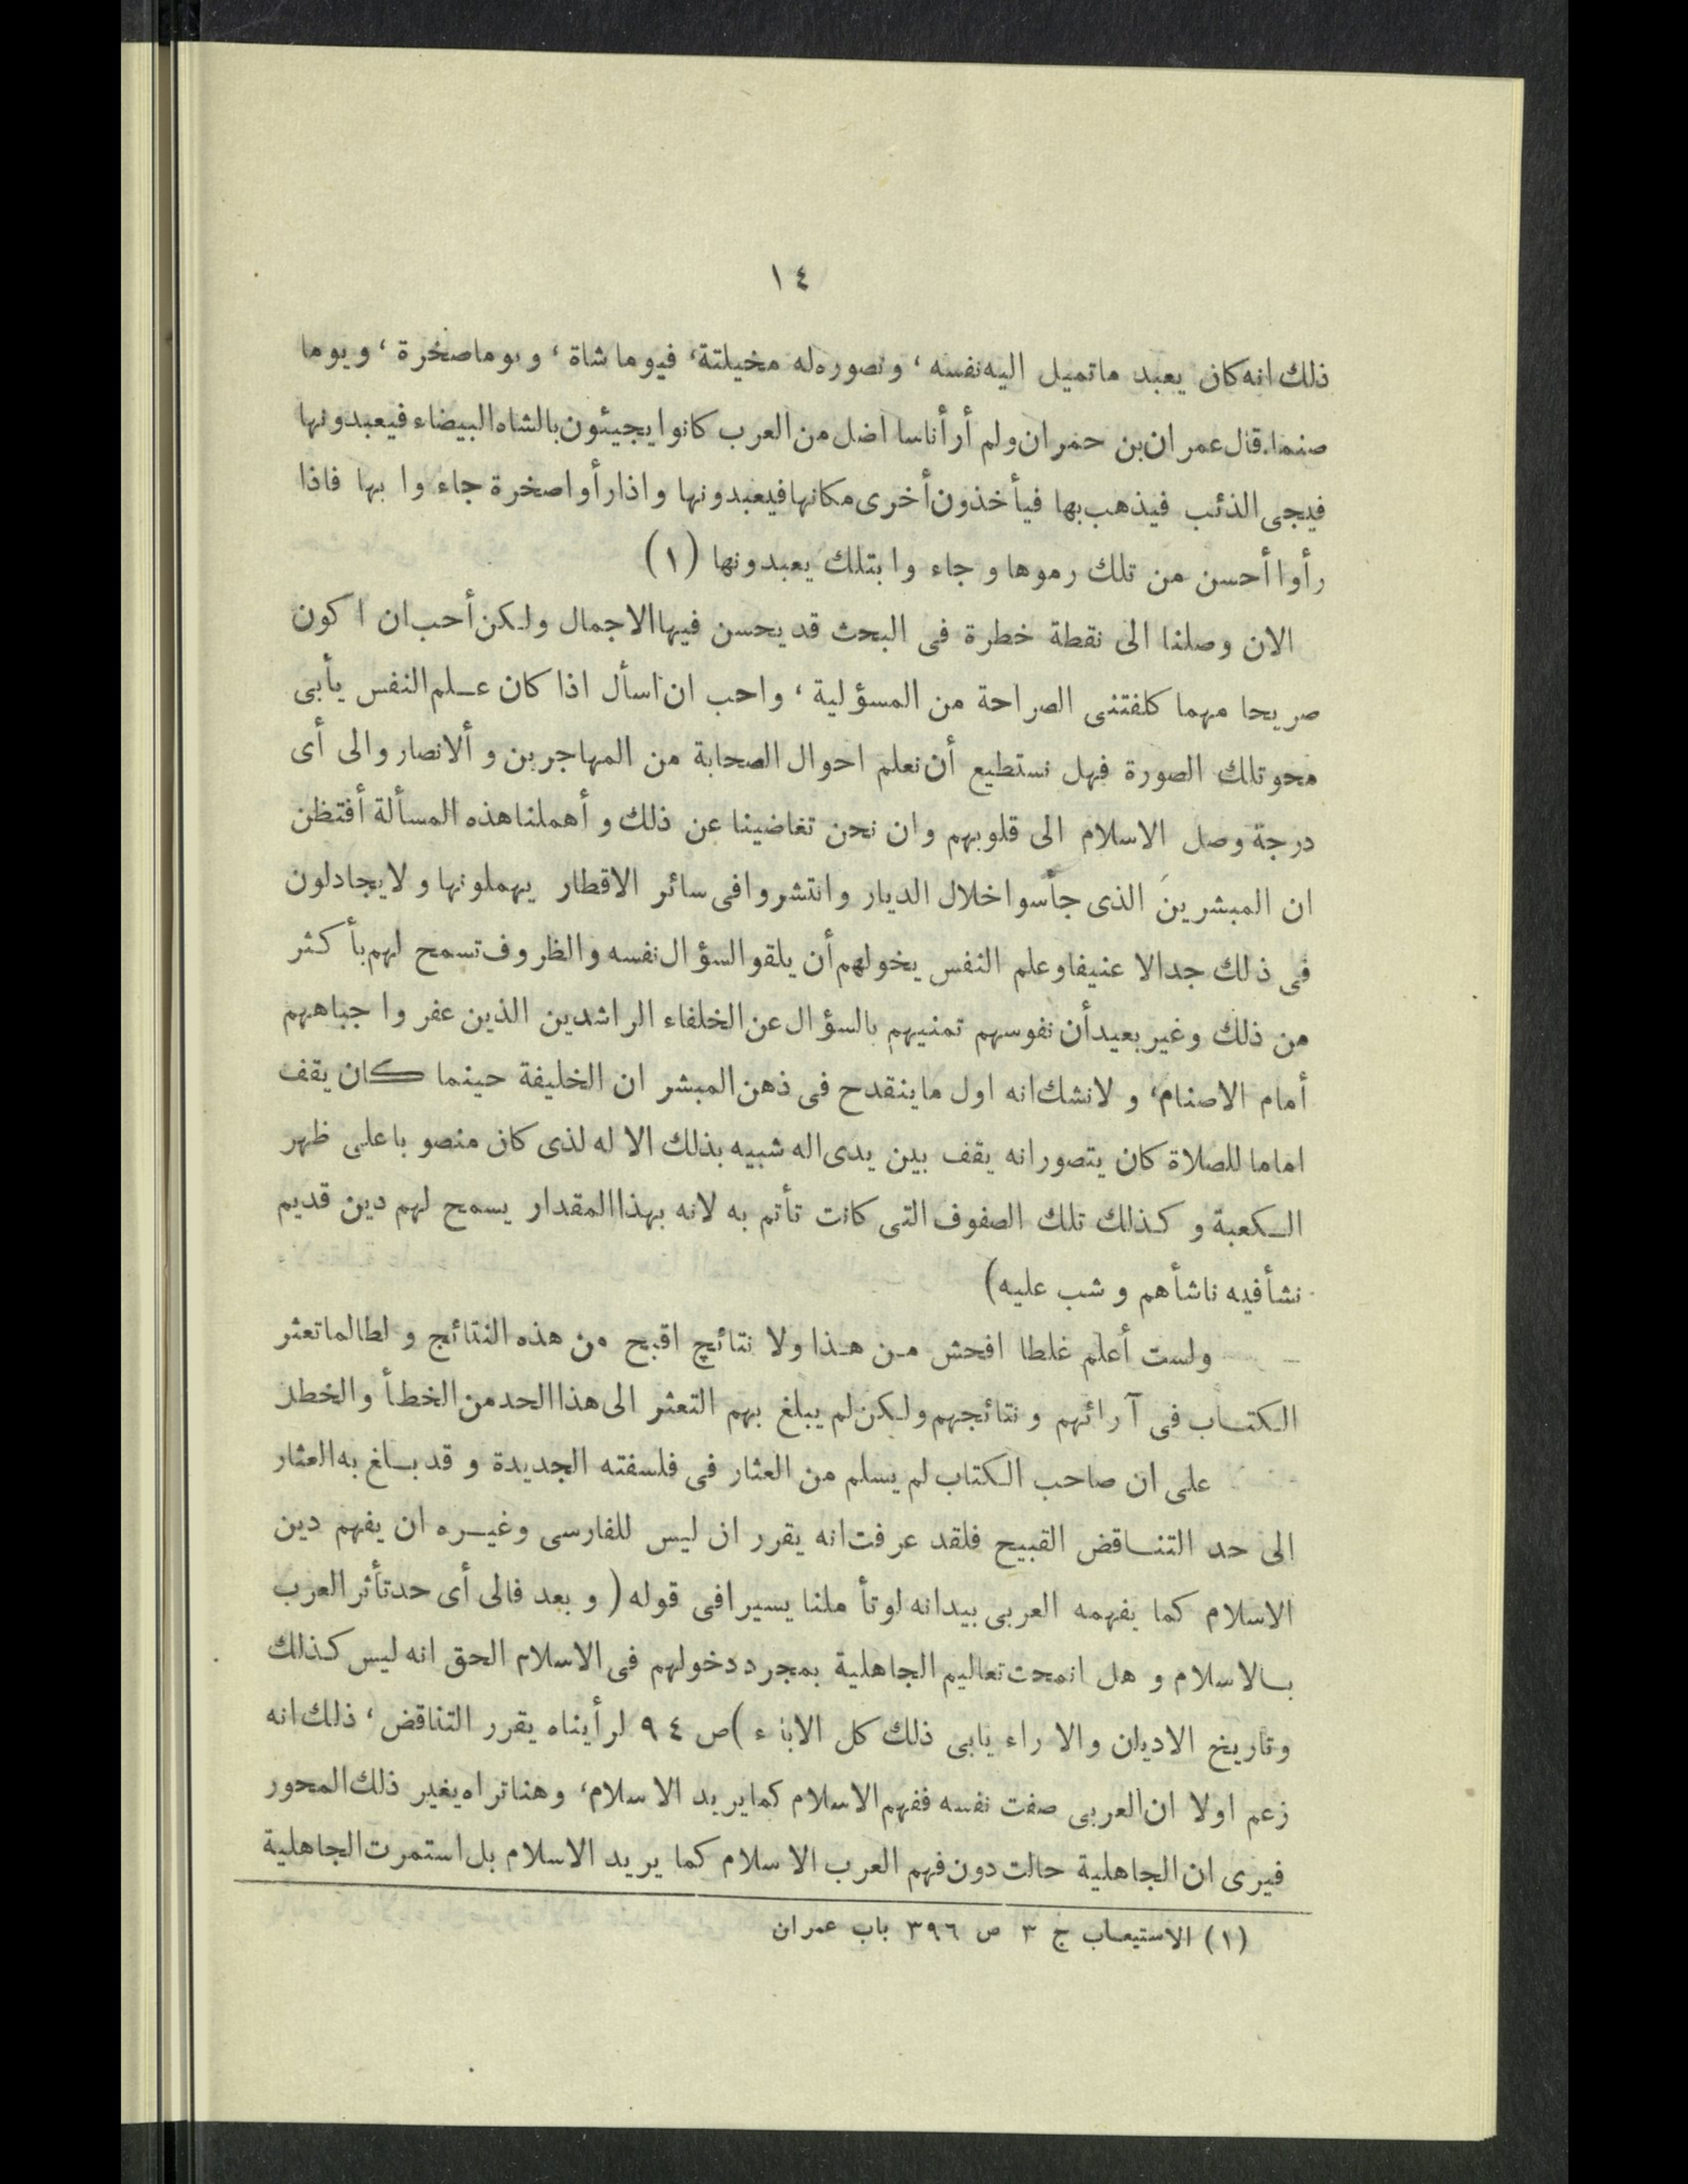 ١٤
ذلك انه كان يعبد ما تميل اليه نفسه ، وتصوره له مخيلتة، فيوما شاة ، ويوما صخرة ، ويوما
صنما. قال عمران بن حمران ولم أر أناسا اضل من العرب كانوا يجيئون بالشاه البيضاء فيعبدونها
فيجى الذئب فيذهب بها فيأخذون أخرى مكانها فيعبدونها واذا رأوا صخرة جاءوا بها فاذا
رأوا أحسن من تلك رموها و جاءوا بتلك يعبدونها (١)
الان وصلنا الى نقطة خطرة فى البحث قد يحسن فيها الاجمال ولكن أحب ان اكون
صريحا مهما كلفتنى الصراحة من المسؤلية ، واحب ان اسأل اذا كان علم النفس يأبى
محو تلك الصورة فهل نستطيع أن نعلم احوال الصحابة من المهاجرين و ألانصار والى أى
درجة وصل الاسلام الى قلوبهم وان نحن تغاضينا عن ذلك و أهملنا هذه المسألة أفتظن
ان المبشرين الذى جأسوا خلال الديار وانتشروا فى سائر الاقطار يهملونها و لا يجادلون
فى ذلك جدالا عنيفا وعلم النفس يخولهم أن يلقو السؤال نفسه والظروف تسمح لهم بأكثر
من ذلك وغير بعيد أن نفوسهم تمنيهم بالسؤال عن الخلفاء الراشدين الذين عفروا جباههم
أمام الاصنام، و لا نشك انه اول ما ينقدح فى ذهن المبشر ان الخليفة حينما كان يقف
اماما للصلاة كان يتصور انه يقف بين يدى اله شبيه بذلك الا له لذى كان منصوبا على ظهر
الكعبة و كذلك تلك الصفوف التى كانت تأتم به لانه بهذا المقدار يسمح لهم دين قديم
نشأ فيه ناشأهم و شب عليه)
ولست أعلم غلطا افحش من هذا ولا نتائج اقبح من هذه النتائج و لطالما تعثر
الكتاب فى آرائهم و نتائجهم ولكن لم يبلغ بهم التعثر الى هذا الحد من الخطأ والخطل
على ان صاحب الكتاب لم يسلم من العثار فى فلسفته الجديدة و قد بلغ به العثار
الى حد التناقض القبيح فلقد عرفت انه يقرر ان ليس للفارسى وغيره ان يفهم دين
الاسلام كما يفهمه العربى بيدانه لو تأملنا يسيرا فى قوله ( و بعد فالى أى حد تأثر العرب
بالاسلام و هل انمحت تعاليم الجاهلية بمجرد دخولهم فى الاسلام الحق انه ليس كذلك
وتاريخ الاديان والاراء يابى ذلك كل الاباء )ص ٩٤ لرأيناه يقرر التناقض ، ذلك انه
زعم اولا ان العربى صفت نفسه ففهم الاسلام كما يريد الاسلام، وهنا تراه يغير ذلك المحور
فيرى ان الجاهلية حالت دون فهم العرب الاسلام كما يريد الاسلام بل استمرت الجاهلية
(١) الاستيعاب ج ٣ ص ٣٩٦ باب عمران